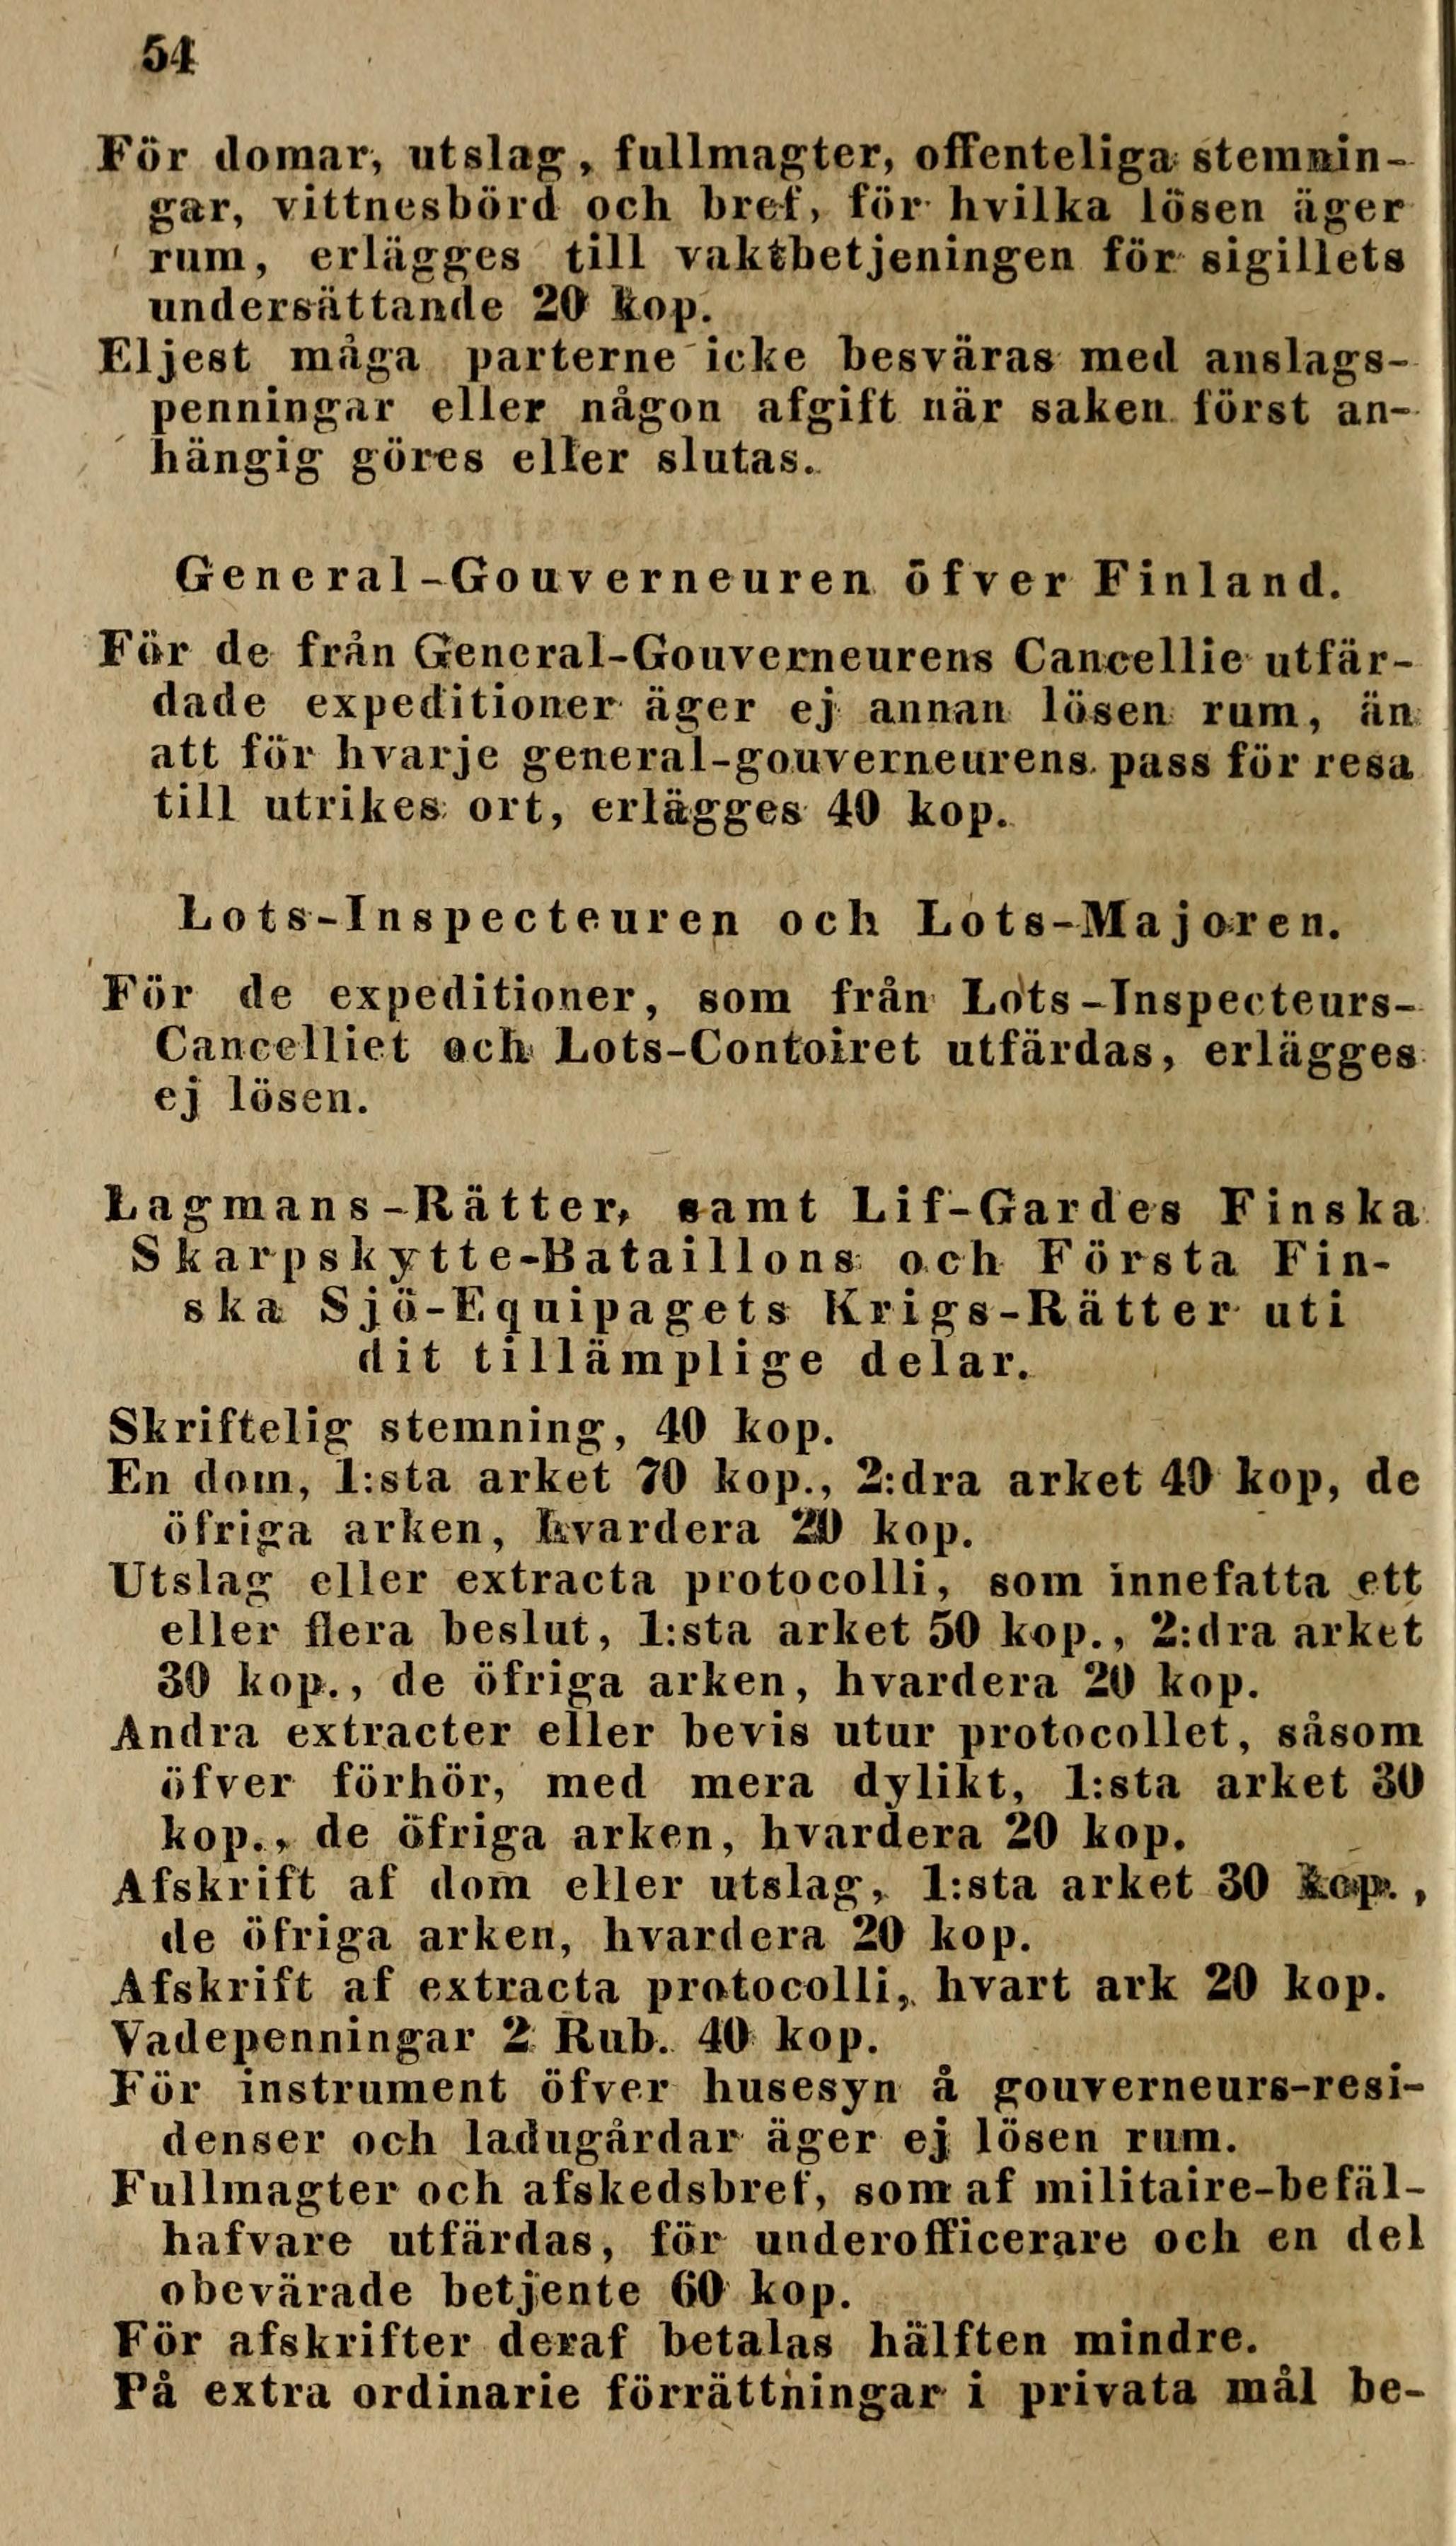 54
För domar, utslag, fullmagter, offenteliga stemnin-
gar, vittnesbörd och bref, för hvilka lösen äger
rum, erlägges till vaktbetjeningen för sigillets
undersättande 20 kop.
Eljest måga parterne icke besväras med anslags-
penningar eller någon afgift när saken först an-
hängig göres eller slutas.
General-Gouverneuren öfver Finland.
För de från General-Gouverneurens Cancellie utfär-
dade expeditioner äger ej annan lösen rum, än
att för hvarje general-gouverneurens pass för resa
till utrikes ort, erlägges 40 kop.
Lots-Inspecteuren och Lots-Majoren.
För de expeditioner, som från Lots-Inspecteurs-
Cancelliet och Lots-Contoiret utfärdas, erlägges
ej lösen.
Lagmans-Rätter, samt Lif-Gardes Finska
Skarpskytte-Bataillons och Första Fin-
ska Sjö-Equipagets Krigs-Rätter uti
dit tillämplige delar.
Skriftelig stemning, 40 kop.
En dom, 1:sta arket 70 kop., 2:dra arket 40 kop, de
öfriga arken, hvardera 20 kop.
Utslag eller extracta protocolli, som innefatta ett
eller flera beslut, 1:sta arket 50 kop., 2:dra arket
30 kop., de öfriga arken, hvardera 20 kop.
Andra extracter eller bevis utur protocollet, såsom
öfver förhör, med mera dylikt, 1:sta arket 30
kop., de öfriga arken, hvardera 20 kop.
Afskrift af dom eller utslag, 1:sta arket 30 kop.,
de öfriga arken, hvardera 20 kop.
Afskrift af extracta protocolli, hvart ark 20 kop.
Vadepenningar 2 Rub. 40 kop.
För instrument öfver husesyn å gouverneurs-resi-
denser och ladugårdar äger ej lösen rum.
Fullmagter och afskedsbref, som af militaire-befäl-
hafvare utfärdas, för underofficerare och en del
obevärade betjente 60 kop.
För afskrifter deraf betalas hälften mindre.
På extra ordinarie förrättningar i privata mål be-